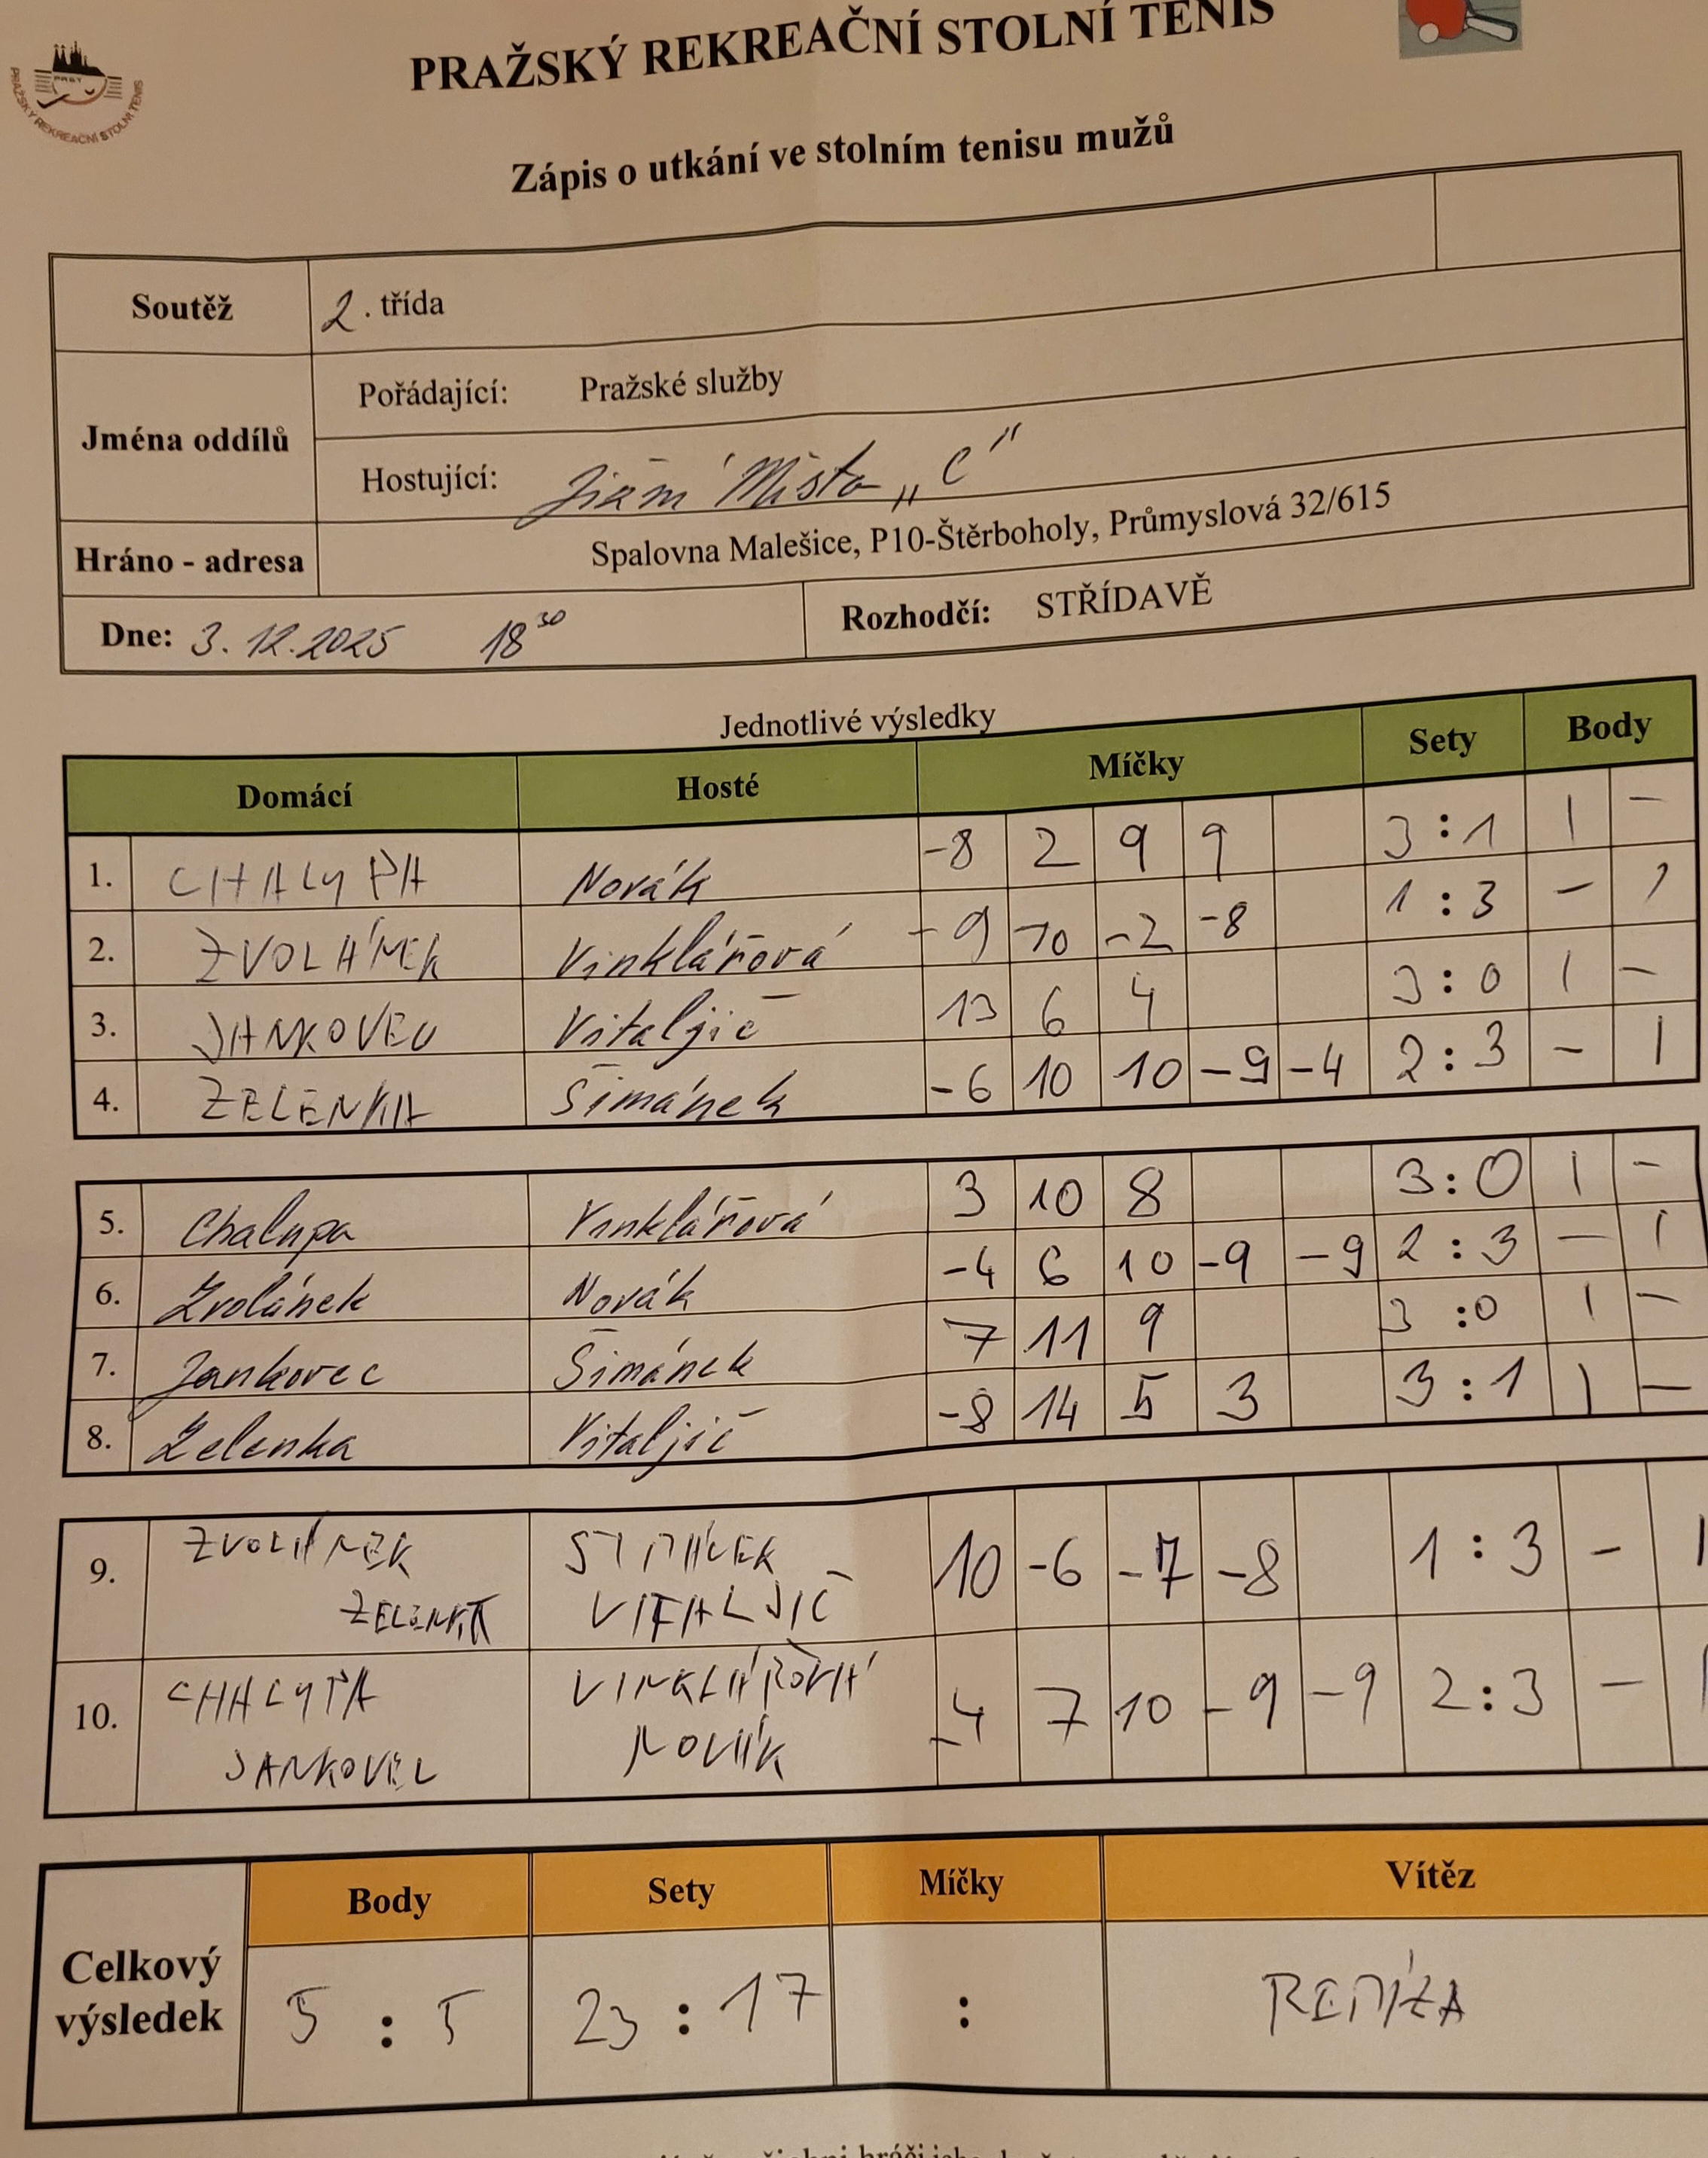 PRAŽSKÝ REKREAČNÍ STOLNÍ TENIS
PRST
PRAŽSKÝ REKREAČNÍ STOLNÍ TENIS
Zápis o utkání ve stolním tenisu mužů
Soutěž 2. třída
Jména oddílů
Pořádající: Pražské služby
Hostující: Jižní Město „C"
Hráno - adresa Spalovna Malešice, P10-Štěrboholy, Průmyslová 32/615
Dne: 3. 12. 2025 18 30 Rozhodčí: STŘÍDAVĚ
Jednotlivé výsledky
Domácí Hosté Míčky Sety Body
1. CHALUPA Novák -8 2 9 9 3:1 1 -
2. ZVOLÁNEK Vinklářová -9 10 -2 -8 1:3 - 1
3. JANKOVEC Vitaljič 13 6 4 3:0 1 -
4. ZELENKA Šimánek -6 10 10 -9 -4 2:3 - 1
5. Chalupa Vinklářová 3 10 8 3:0 1 -
6. Zvolánek Novák -4 6 10 -9 -9 2:3 - 1
7. Jankovec Šimánek 7 11 9 3:0 1 -
8. Zelenka Vitaljič -8 14 5 3 3:1 1 -
9. ZVOLÁNEK ŠIMÁNEK 10 -6 -7 -8 1:3 - 1
ZELENKA VITALJIČ
10. CHALUPA VINKLÁŘOVÁ -4 7 10 -9 -9 2:3 - 1
JANKOVEC NOVÁK
Body Sety Míčky Vítěz
Celkový výsledek 5 : 5 23 : 17 : REMÍZA